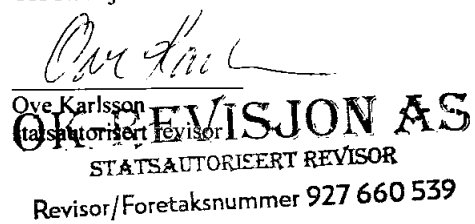 Ove Karlsson
statsautorisert revisor
OK REVISJON AS
STATSAUTORISERT REVISOR
Revisor/Foretaksnummer 927 660 539